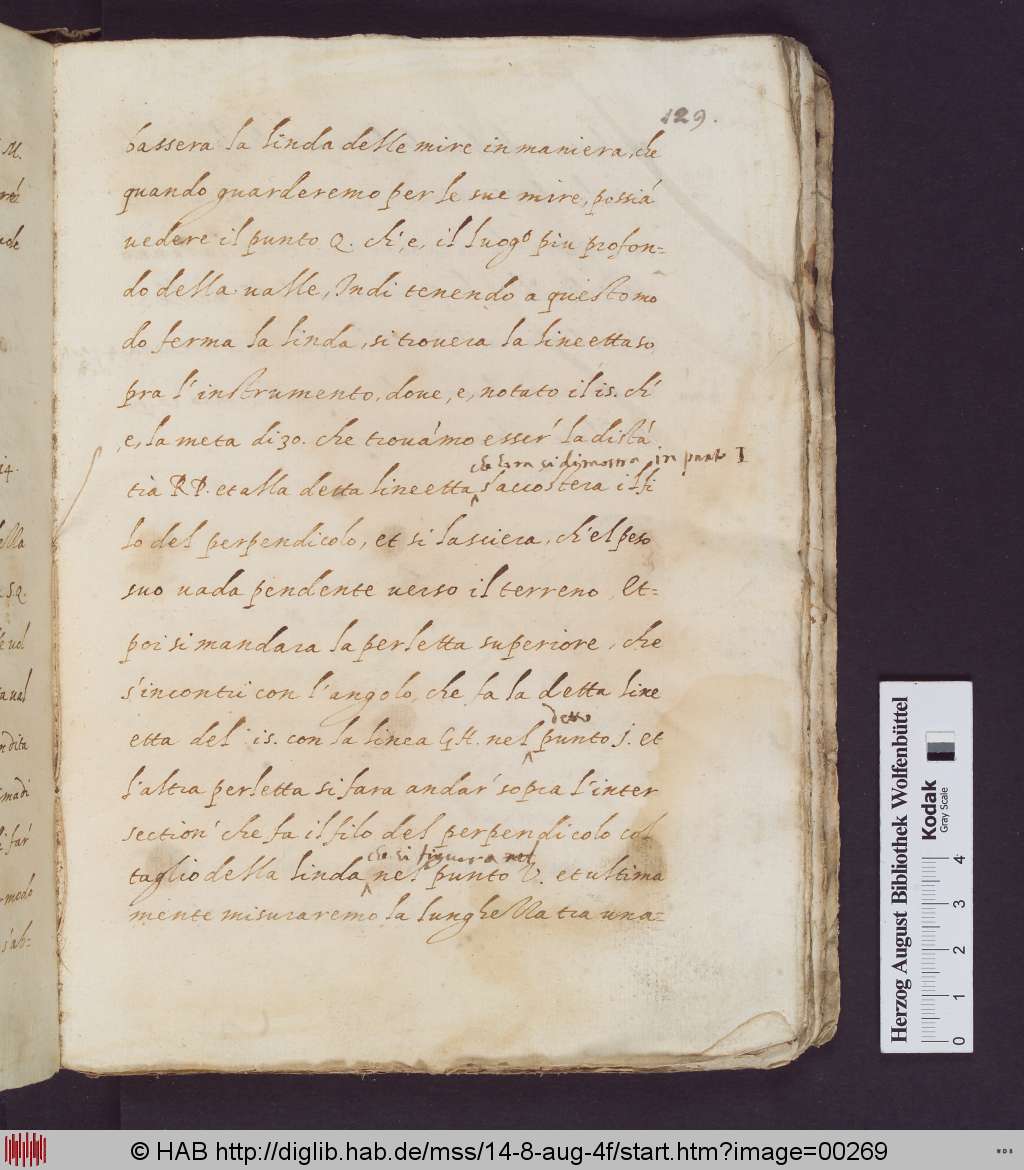 129.
bassera la linda delle mire in maniera, che
quando guarderemo per le sue mire, possiá
uedere il punto Q. ch', e, il luogo piu profon=
do della ualle, Indi tenendo a questo mo
do ferma la linda, si trouera la lineetta so
pra l'instrumento, doue, e, notato il is. ch'
,e, la meta di 30. che trouámo esser' la distá
in punto I
tia R P. et alla detta lineetta s'accostera il fi
lo del perpendicolo, et si lasciera, ch'el peso
suo uada pendente uerso il terreno, Et=
poi si mandara la perletta superiore, che
s'incontri con l'angolo, che fa la detta line
detto
etta del' is. con la linea G H. nel punto I. et
l'altra perletta si fara andar' sopra l'inter
section' che fa il filo del perpendicolo col
che si figura nel
taglio della linda nel punto V. et ultima
mente misuraremo la lunghezza tra una=
M.
14.
ella
SQ.
ual
ndita
modo
s'ab=
Herzog August Bibliothek Wolfenbüttel
Kodak
Gray Scale
0 1 2 3 4
© HAB http://diglib.hab.de/mss/14-8-aug-4f/start.htm?image=00269